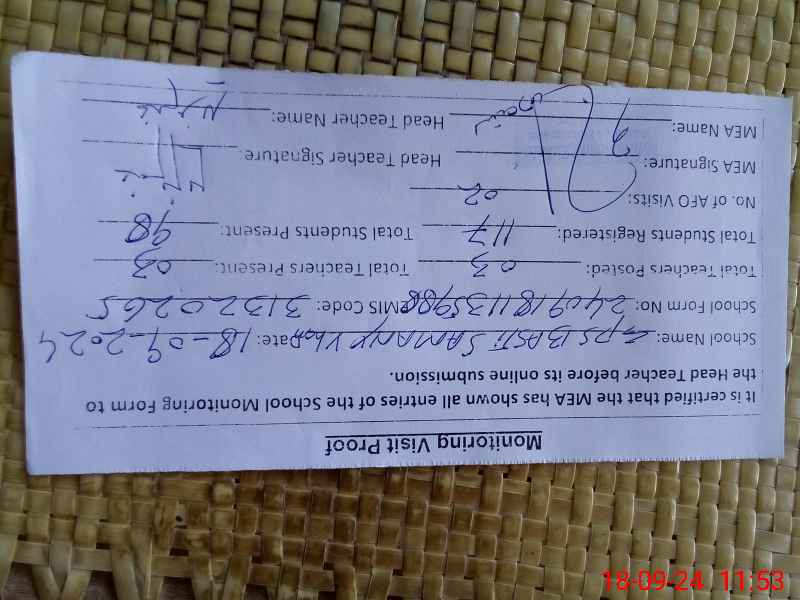 Monitoring Visit Proof
It is certified that the MEA has shown all entries of the School Monitoring Form to
the Head Teacher before its online submission.
School Name: GPS BASTI SAMANY Date: 18-09-2024
School Form No: EMIS Code: 31320265
Total Teachers Posted: 03 Total Teachers Present: 03
Total Students Registered: 117 Total Students Present: 98
No. of AFO Visits: 02
MEA Signature: Head Teacher Signature:
MEA Name: Head Teacher Name:
18-09-24 11:53